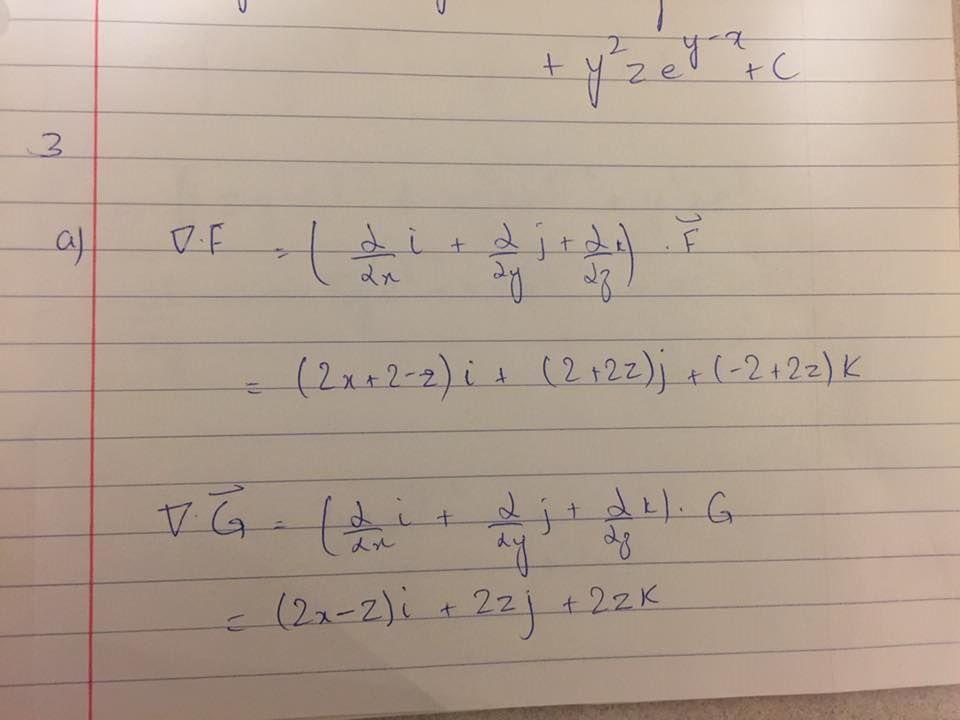 + y²ze^{y-x} + C
3
a) ∇·F = (∂/∂x i + ∂/∂y j + ∂/∂z k) · F⃗
= (2x+2-z) i + (2+2z)j + (-2+2z) k
∇·G⃗ = (∂/∂x i + ∂/∂y j + ∂/∂z k) · G
= (2x-z)i + 2zj + 2zk